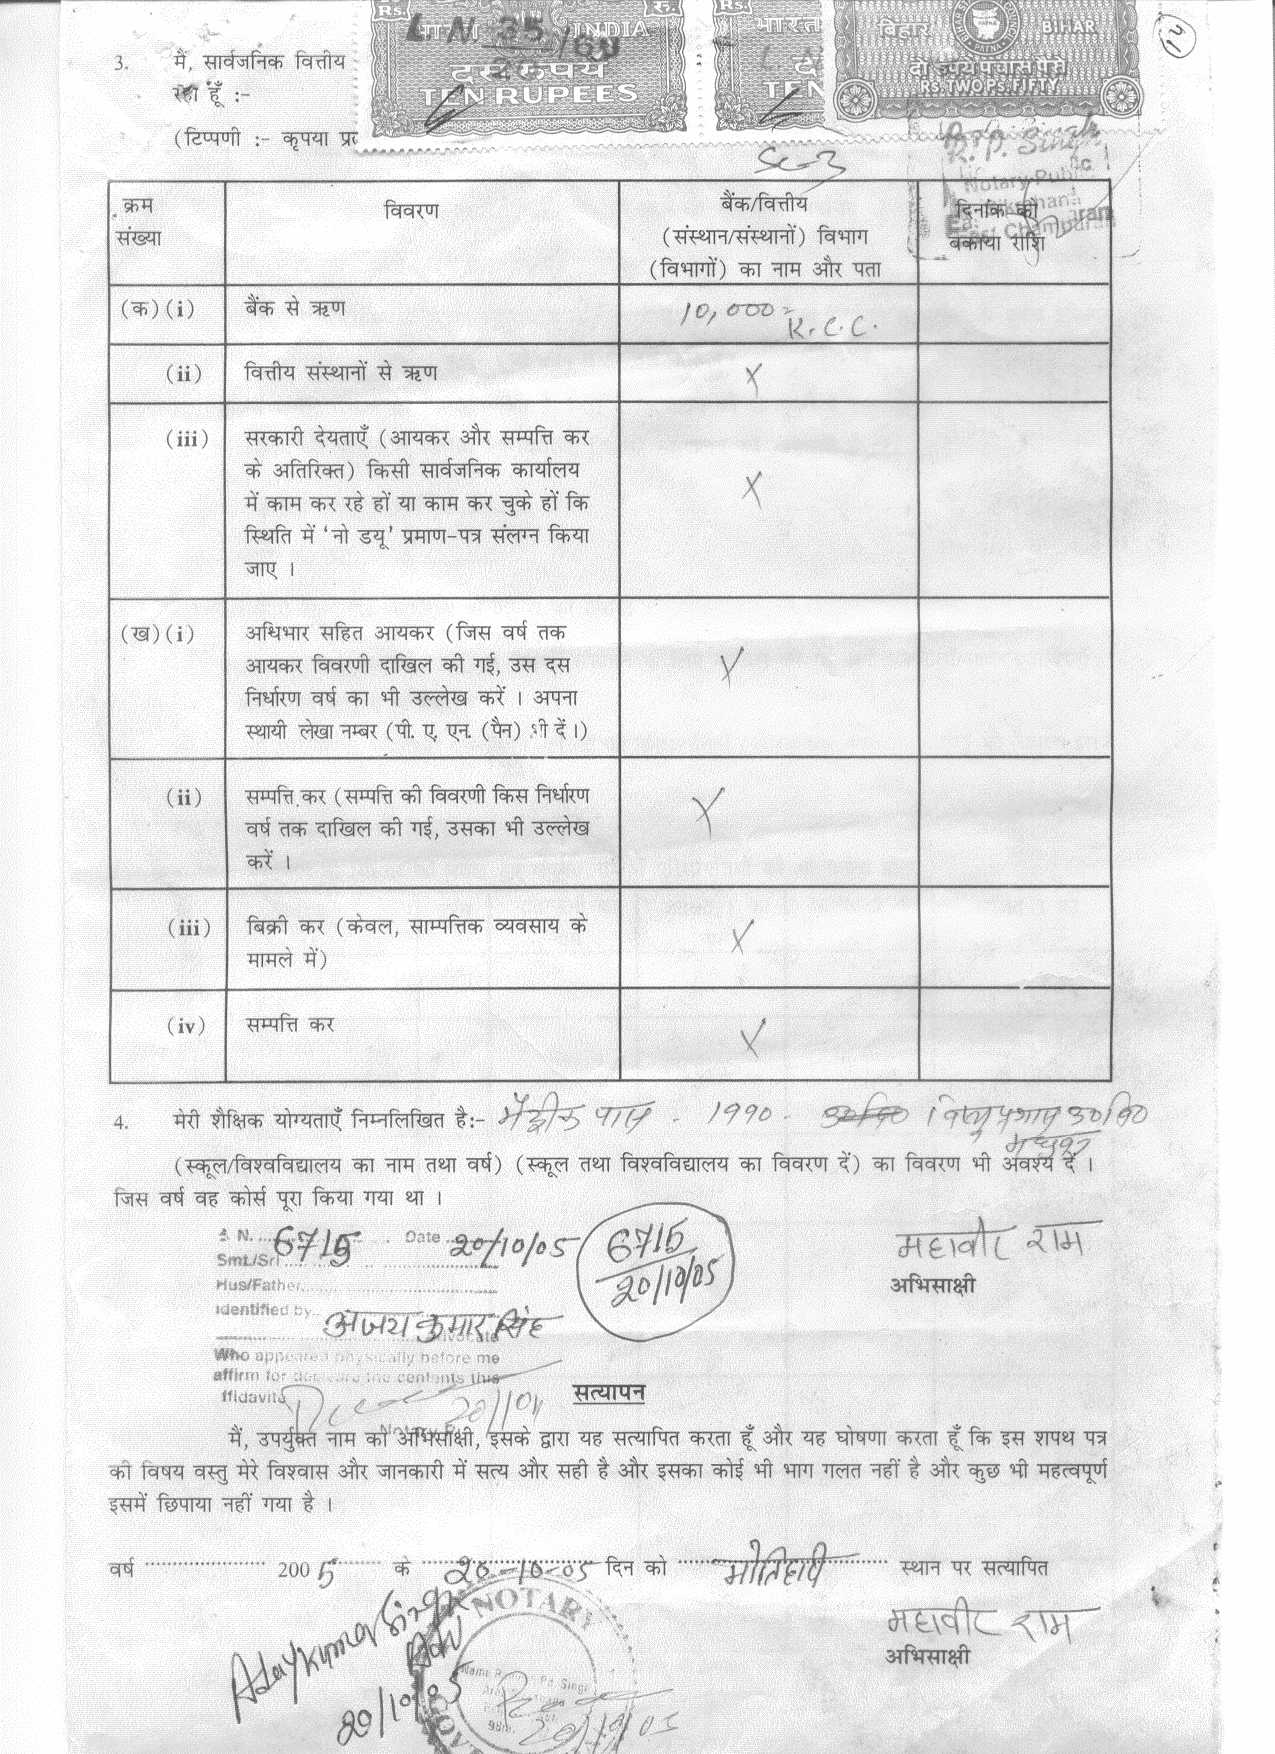 Rs. रु.
L.N. 35/69
भारत INDIA
दस रुपये
TEN RUPEES
Rs.
भारत
TEN
बिहार BIHAR
दो रुपये पचास पैसे
RS.TWO PS.FIFTY
3. मैं, सार्वजनिक वित्तीय
रहा हूँ :-
(टिप्पणी :- कृपया
R.P. Singh
Notary Public
East Champaran
क्रम संख्या
विवरण
बैंक/वित्तीय
(संस्थान/संस्थानों) विभाग
(विभागों) का नाम और पता
दिनांक को
बकाया राशि
(क) (i) बैंक से ऋण 10,000=
K.C.C.
(ii) वित्तीय संस्थानों से ऋण X
(iii) सरकारी देयताएँ (आयकर और सम्पत्ति कर
के अतिरिक्त) किसी सार्वजनिक कार्यालय
में काम कर रहे हों या काम कर चुके हों कि X
स्थिति में 'नो डयू' प्रमाण-पत्र संलग्न किया
जाए ।
(ख) (i) अधिभार सहित आयकर (जिस वर्ष तक
आयकर विवरणी दाखिल की गई, उस दस X
निर्धारण वर्ष का भी उल्लेख करें । अपना
स्थायी लेखा नम्बर (पी. ए. एन. (पैन) भी दें।)
(ii) सम्पत्ति कर (सम्पत्ति की विवरणी किस निर्धारण X
वर्ष तक दाखिल की गई, उसका भी उल्लेख
करें ।
(iii) बिक्री कर (केवल, साम्पत्तिक व्यवसाय के X
मामले में)
(iv) सम्पत्ति कर X
4. मेरी शैक्षिक योग्यताएँ निम्नलिखित है:- मैट्रीक पास - 1990 - उ०वि०
(स्कूल/विश्वविद्यालय का नाम तथा वर्ष) (स्कूल तथा विश्वविद्यालय का विवरण दें) का विवरण भी अवश्य दें ।
जिस वर्ष वह कोर्स पूरा किया गया था ।
S. N. 6715 Date 20/10/05
Smt./Sri
Hus/Father
Identified by
अजय कुमार सिंह
Advocate
Who appeared physically before me
affirm for declare the contents this
ffidavite
Notary P
6715
20/10/05
महावीर राम
अभिसाक्षी
सत्यापन
मैं, उपर्युक्त नाम का अभिसाक्षी, इसके द्वारा यह सत्यापित करता हूँ और यह घोषणा करता हूँ कि इस शपथ पत्र
की विषय वस्तु मेरे विश्वास और जानकारी में सत्य और सही है और इसका कोई भी भाग गलत नहीं है और कुछ भी महत्वपूर्ण
इसमें छिपाया नहीं गया है ।
वर्ष 2005 के 20-10-05 दिन को मोतिहारी स्थान पर सत्यापित
महावीर राम
अभिसाक्षी
Ajay Kumar Singh
Adv
20/10/05
NOTARY
20/10/05